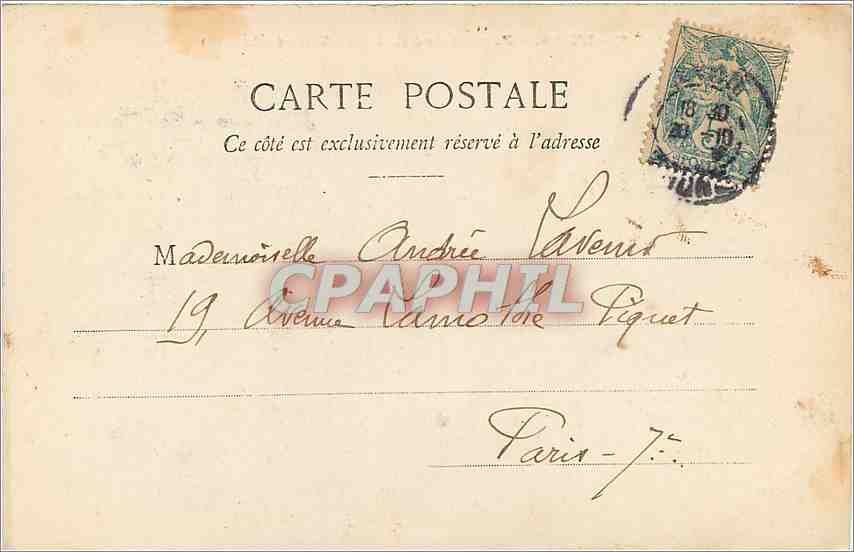 CARTE POSTALE
Ce côté est exclusivement réservé à l'adresse
18 30
20 - 10
Mademoiselle Andrée
CPAPHIL
19, Avenue Lamothe Piquet
Paris - 7e